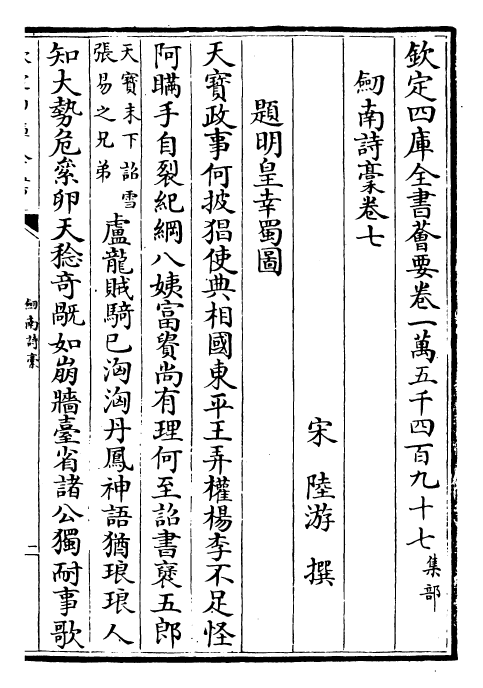 欽定四庫全書薈要卷一萬五千四百九十七集部
劒南詩稾卷七
宋 陸游 撰
題明皇幸蜀圖
天寳政事何披猖使典相國東平王弄權楊李不足怪
阿瞞手自裂紀綱八姨富貴尚有理何至詔書襃五郎
天寳末下詔雪
張易之兄弟
盧龍賊騎已洶洶丹鳳神語猶琅琅人
知大勢危絫卵天稔奇酷如崩牆臺省諸公獨耐事歌
劒南詩稾
一